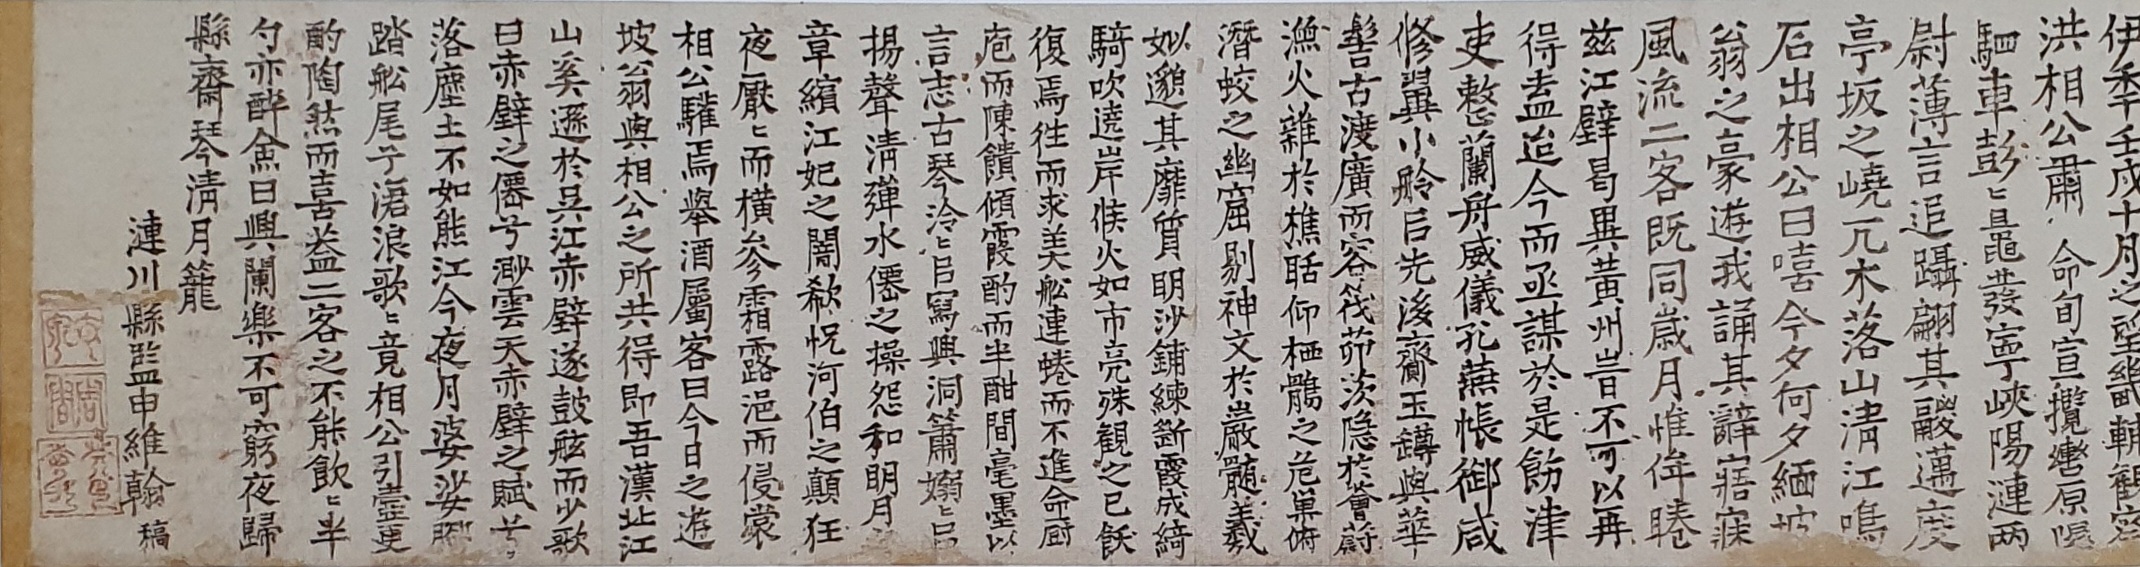 伊季壬戌十月之望畿輔觀察
洪相公肅命旬宣攬轡原隰
駟車彭〻黽發寧峽陽漣两
尉薄言追躡翩其鬷邁度
亭坂之嶢兀木落山淸江鳴
石出相公曰嘻今夕何夕緬坡
翁之豪遊我誦其辭寤寐
風流二客旣同歲月惟侔睠
玆江壁曷異黃州昔不可以再
得盍迨今而亟謀於是飭津
吏整蘭舟威儀孔蕪帳御咸
修翼小舲㠯先後齎玉罇與華
髻古渡廣而容筏茆茨隐於薈蔚
漁火雜於樵聒仰栖鶻之危巢俯
潛蛟之幽窟剔神文於巖髓羲
姒邈其靡質明沙鋪練斷霞成綺
騎吹遶岸候火如市亮殊觀之已飫
復焉徃而求美舩連蜷而不進命廚
庖而陳饋傾霞酌而半酣間毫墨以
言志古琴泠〻㠯寫興洞簫嫋〻㠯
揚聲淸彈水僊之操怨和明月
章繽江妃之闇欷怳河伯之顛狂
夜厭〻而橫參霜露浥而侵裳
相公驩焉擧酒屬客曰今日之遊
坡翁與相公之所共得即吾漢北江
山奚遜於吳江赤壁遂鼓舷而少歌
曰赤壁之僊兮渺雲天赤壁之賦兮
落塵土不如熊江今夜月婆娑
踏舩尾兮滄浪歌〻竟相公引壺更
酌陶然而喜葢二客之不能飮〻半
勺亦醉僉曰興闌樂不可窮夜歸
縣齋琴淸月籠
漣川縣監申維翰稿